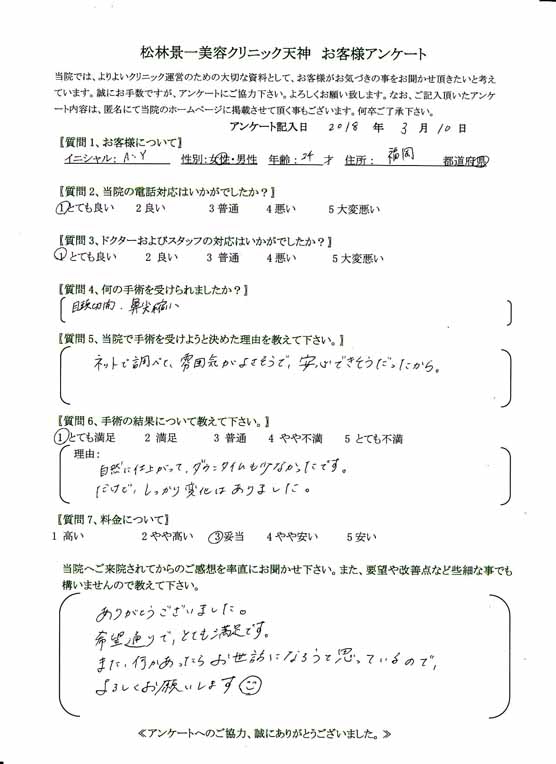 松林景一美容クリニック天神　お客様アンケート
当院では、よりよいクリニック運営のための大切な資料として、お客様がお気づきの事をお聞かせ頂きたいと考え
ています。誠にお手数ですが、アンケートにご協力下さい。よろしくお願い致します。なお、ご記入頂いたアンケ
ート内容は、匿名にて当院のホームページに掲載させて頂く事もございます。何卒ご了承下さい。
アンケート記入日　2018　年　3　月　10　日
【質問1、お客様について】
イニシャル: A・Y　性別:女性・男性　年齢: 24 才　住所: 福岡　都道府県
【質問2、当院の電話対応はいかがでしたか？】
1とても良い　2 良い　3 普通　4 悪い　5 大変悪い
【質問3、ドクターおよびスタッフの対応はいかがでしたか？】
1とても良い　2 良い　3 普通　4 悪い　5 大変悪い
【質問4、何の手術を受けられましたか？】
目頭切開、鼻尖縮小
【質問5、当院で手術を受けようと決めた理由を教えて下さい。】
ネットで調べて、雰囲気がよさそうで、安心できそうだったから。
【質問6、手術の結果について教えて下さい。】
1とても満足　2 満足　3 普通　4 やや不満　5 とても不満
理由:
自然に仕上がって、ダウンタイムも少なかったです。
だけど、しっかり変化はありました。
【質問7、料金について】
1 高い　2 やや高い　3妥当　4 やや安い　5 安い
当院へご来院されてからのご感想を率直にお聞かせ下さい。また、要望や改善点など些細な事でも
構いませんので教えて下さい。
ありがとうございました。
希望通りで、とても満足です。
また、何かあったらお世話になろうと思っているので、
よろしくお願いします
≪アンケートへのご協力、誠にありがとうございました。≫